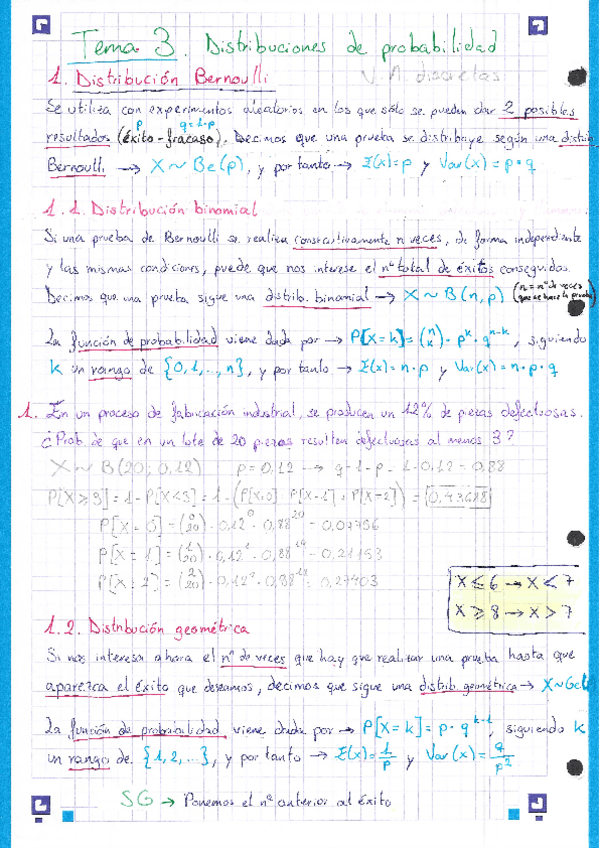 Tema 3. Distribuciones de probabilidad
1. Distribución Bernoulli V.A. discretas
Se utiliza con experimentos aleatorios en los que sólo se pueden dar 2 posibles
p q=1-p
resultados (éxito-fracaso). Decimos que una prueba se distribuye según una distrib.
Bernoulli → X ~ Be(p), y por tanto → E(x)=p y Var(x)=p·q
1.1. Distribución binomial
Si una prueba de Bernoulli se realiza consecutivamente n veces, de forma independiente
y las mismas condiciones, puede que nos interese el nº total de éxitos conseguidos.
Decimos que una prueba sigue una distrib. binomial → X ~ B(n,p) (n = nº de veces que se hace la prueba)
La función de probabilidad viene dada por → P[X=k]=(n k)·p^k·q^n-k, siguiendo
k un rango de {0,1,...,n}, y por tanto → E(x)=n·p y Var(x)=n·p·q
1. En un proceso de fabricación industrial, se producen un 12% de piezas defectuosas.
¿Prob. de que en un lote de 20 piezas resulten defectuosas al menos 3?
X ~ B(20; 0,12) p=0,12 → q=1-p=1-0,12=0,88
P[X≥3]=1-P[X<3]=1-(P[X=0]+P[X=1]+P[X=2])=
P[X=0]=(0 20)·0,12^0·0,88^20=
P[X=1]=(1 20)·0,12^1·0,88^19=
P[X=2]=(2 20)·0,12^2·0,88^18=0,27403
X ≤ 6 → X < 7
X ≥ 8 → X > 7
1.2. Distribución geométrica
Si nos interesa ahora el nº de veces que hay que realizar una prueba hasta que
aparezca el éxito que deseamos, decimos que sigue una distrib. geométrica →
La función de probabilidad viene dada por → P[X=k]=p·q^k-1, siguiendo k
un rango de {1,2,...}, y por tanto → E(x)=1/p y Var(x)=q/p^2
SG → Ponemos el nº anterior al éxito